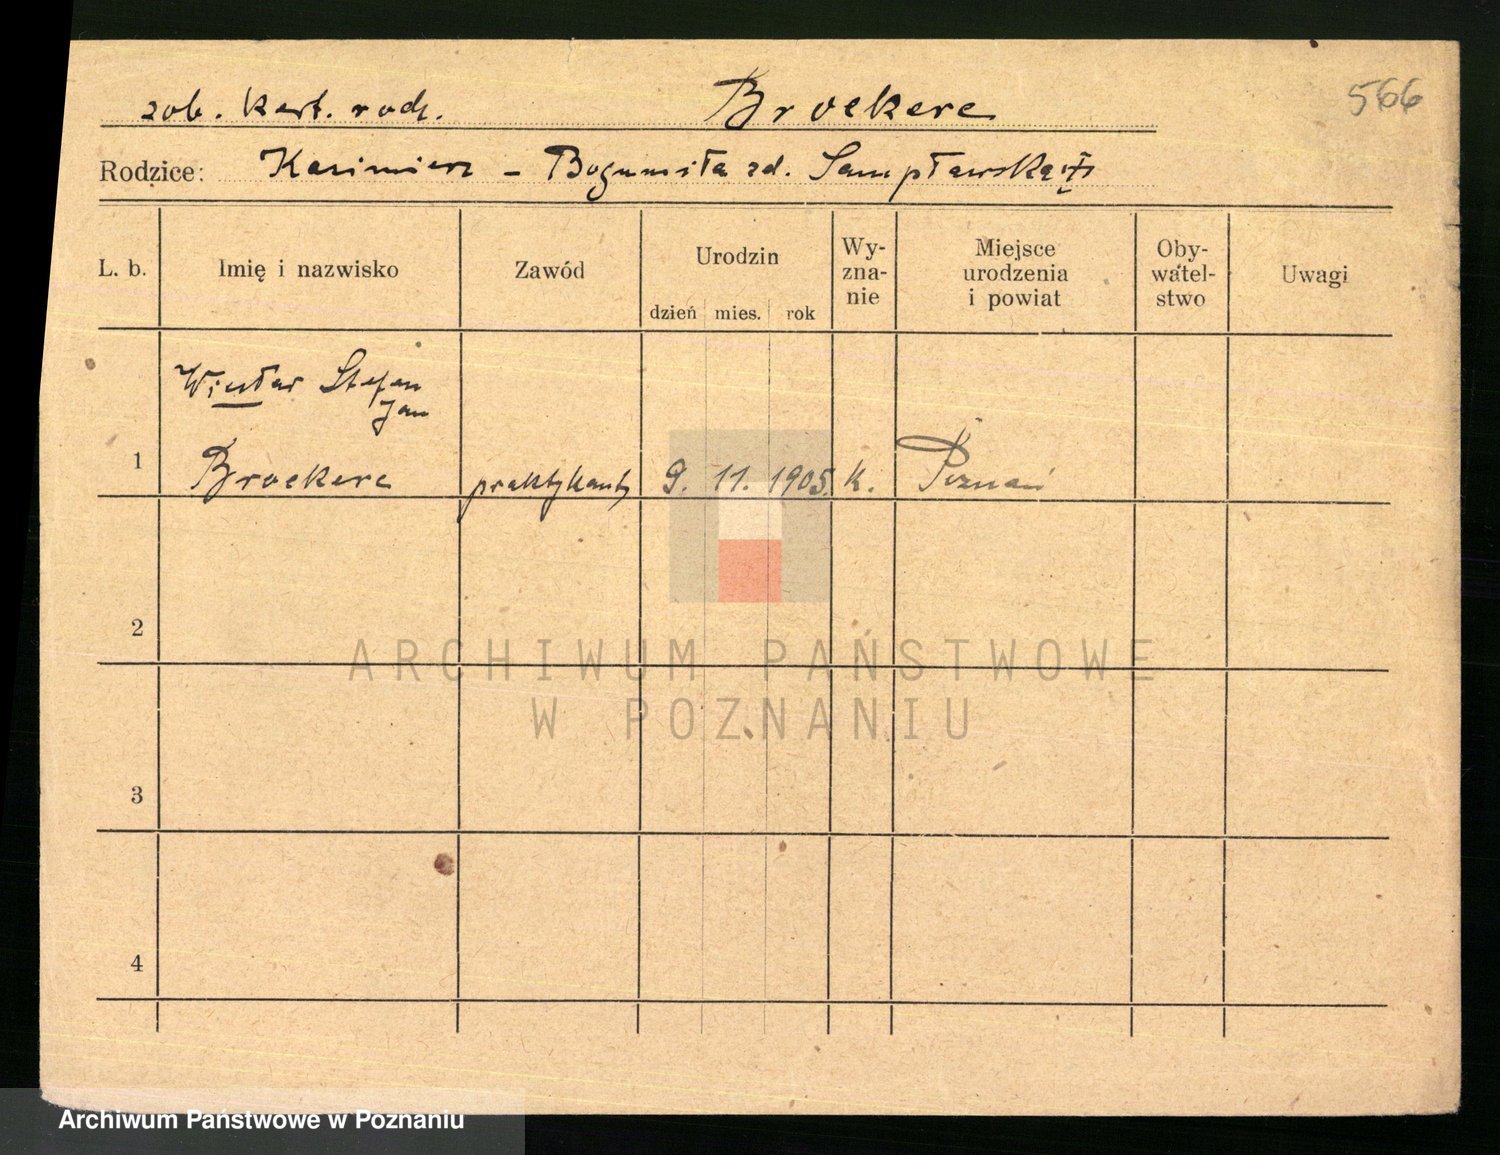 zob. kart. rodz. Broekere 566
Rodzice: Kazimierz - Bogumiła zd. Sampławska
L. b. Imię i nazwisko Zawód Urodzin dzień mies. rok Wy-zna-nie Miejsce urodzenia i powiat Oby-watel-stwo Uwagi
Wiesław Stefan
Jan
1 Broekere praktykant 9. 11. 1905. k. Poznań
2
3
4
ARCHIWUM PAŃSTWOWE
W POZNANIU
Archiwum Państwowe w Poznaniu